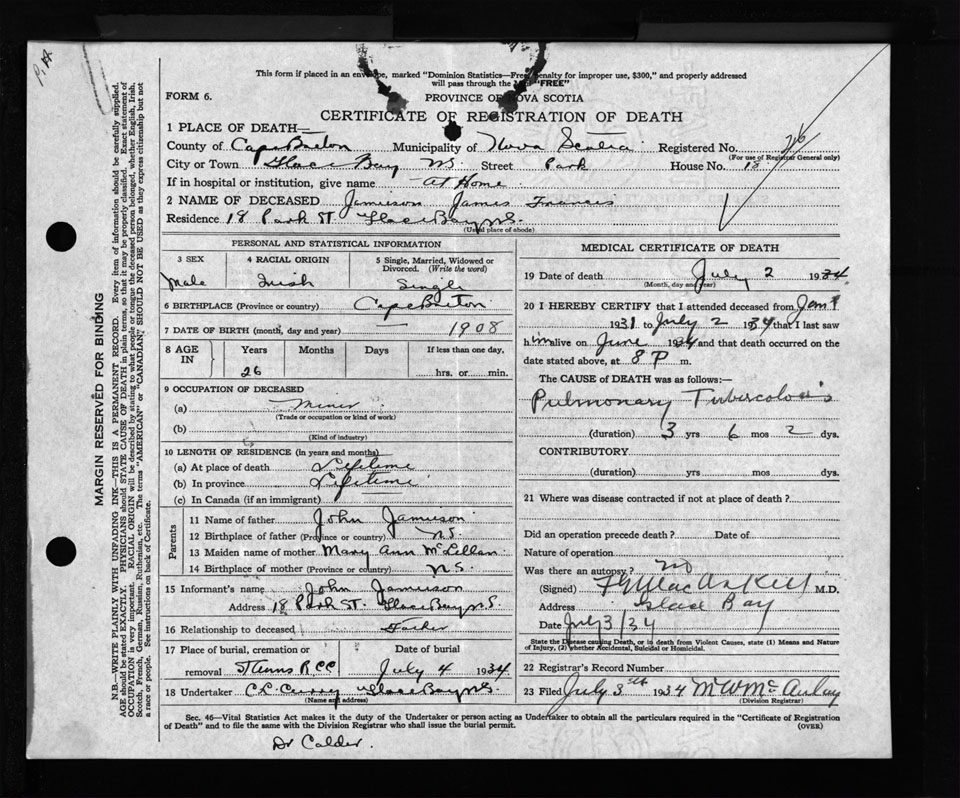 P.A.
This form if placed in an envelope, marked "Dominion Statistics—Free, penalty for improper use, $300," and properly addressed
will pass through the "FREE"
FORM 6.
PROVINCE OF NOVA SCOTIA
CERTIFICATE OF REGISTRATION OF DEATH
1 PLACE OF DEATH—
County of Cape Breton Municipality of Nova Scotia Registered No. 26
(For use of Registrar General only)
City or Town Glace Bay N.S. Street Park House No. 18
If in hospital or institution, give name At Home
2 NAME OF DECEASED Jamieson James Francis
Residence 18 Park St. Glace Bay N.S.
(Usual place of abode)
PERSONAL AND STATISTICAL INFORMATION
3 SEX
Male
4 RACIAL ORIGIN
Irish
5 Single, Married, Widowed or Divorced. (Write the word)
Single
6 BIRTHPLACE (Province or country) Cape Breton
7 DATE OF BIRTH (month, day and year) — 1908
8 AGE IN Years Months Days If less than one day,
26 hrs. or min.
9 OCCUPATION OF DECEASED
(a) Miner
(Trade or occupation or kind of work)
(b)
(Kind of industry)
10 LENGTH OF RESIDENCE (in years and months)
(a) At place of death Lifetime
(b) In province Lifetime
(c) In Canada (if an immigrant)
Parents
11 Name of father John Jamieson
12 Birthplace of father (Province or country) N.S.
13 Maiden name of mother Mary Ann McLellan
14 Birthplace of mother (Province or country) N.S.
15 Informant's name John Jamieson
Address 18 Park St. Glace Bay N.S
16 Relationship to deceased Father
17 Place of burial, cremation or removal St Anns R.C.C
Date of burial
July 4 1934
18 Undertaker C.L. Curry Glace Bay N.S.
(Name and address)
MEDICAL CERTIFICATE OF DEATH
19 Date of death July 2 1934
(Month, day and year)
20 I HEREBY CERTIFY that I attended deceased from Jan 1
1931 to July 2 1934 that I last saw
him alive on June 1934 and that death occurred on the
date stated above, at 8 P m.
The CAUSE OF DEATH was as follows:—
Pulmonary Tuberculosis
(duration) 3 yrs 6 mos 2 dys.
CONTRIBUTORY
(duration) yrs mos dys.
21 Where was disease contracted if not at place of death?
Did an operation precede death? Date of
Nature of operation
Was there an autopsy? no
(Signed) M.D.
Address Glace Bay
Date July 3/34
State the Disease causing Death, or in death from Violent Causes, state (1) Means and Nature
of Injury, (2) whether Accidental, Suicidal or Homicidal.
22 Registrar's Record Number
23 Filed July 3rd 1934 M W McAulay
(Division Registrar)
Sec. 46—Vital Statistics Act makes it the duty of the Undertaker or person acting as Undertaker to obtain all the particulars required in the "Certificate of Registration
of Death" and to file the same with the Division Registrar who shall issue the burial permit.
(OVER)
Dr Calder.
MARGIN RESERVED FOR BINDING
N.B.—WRITE PLAINLY WITH UNFADING INK—THIS IS A PERMANENT RECORD. Every item of information should be carefully supplied.
AGE should be stated EXACTLY. PHYSICIANS should STATE CAUSE OF DEATH in plain terms, so that it may be properly classified. Exact statement of
OCCUPATION is very important. RACIAL ORIGIN will be described by stating to what people or tongue the deceased person belonged, whether English, Irish,
Scotch, French, German, Russian, Ruthenian, etc. The terms "AMERICAN" or "CANADIAN" SHOULD NOT BE USED as they express citizenship but not
a race or people. See instructions on back of Certificate.